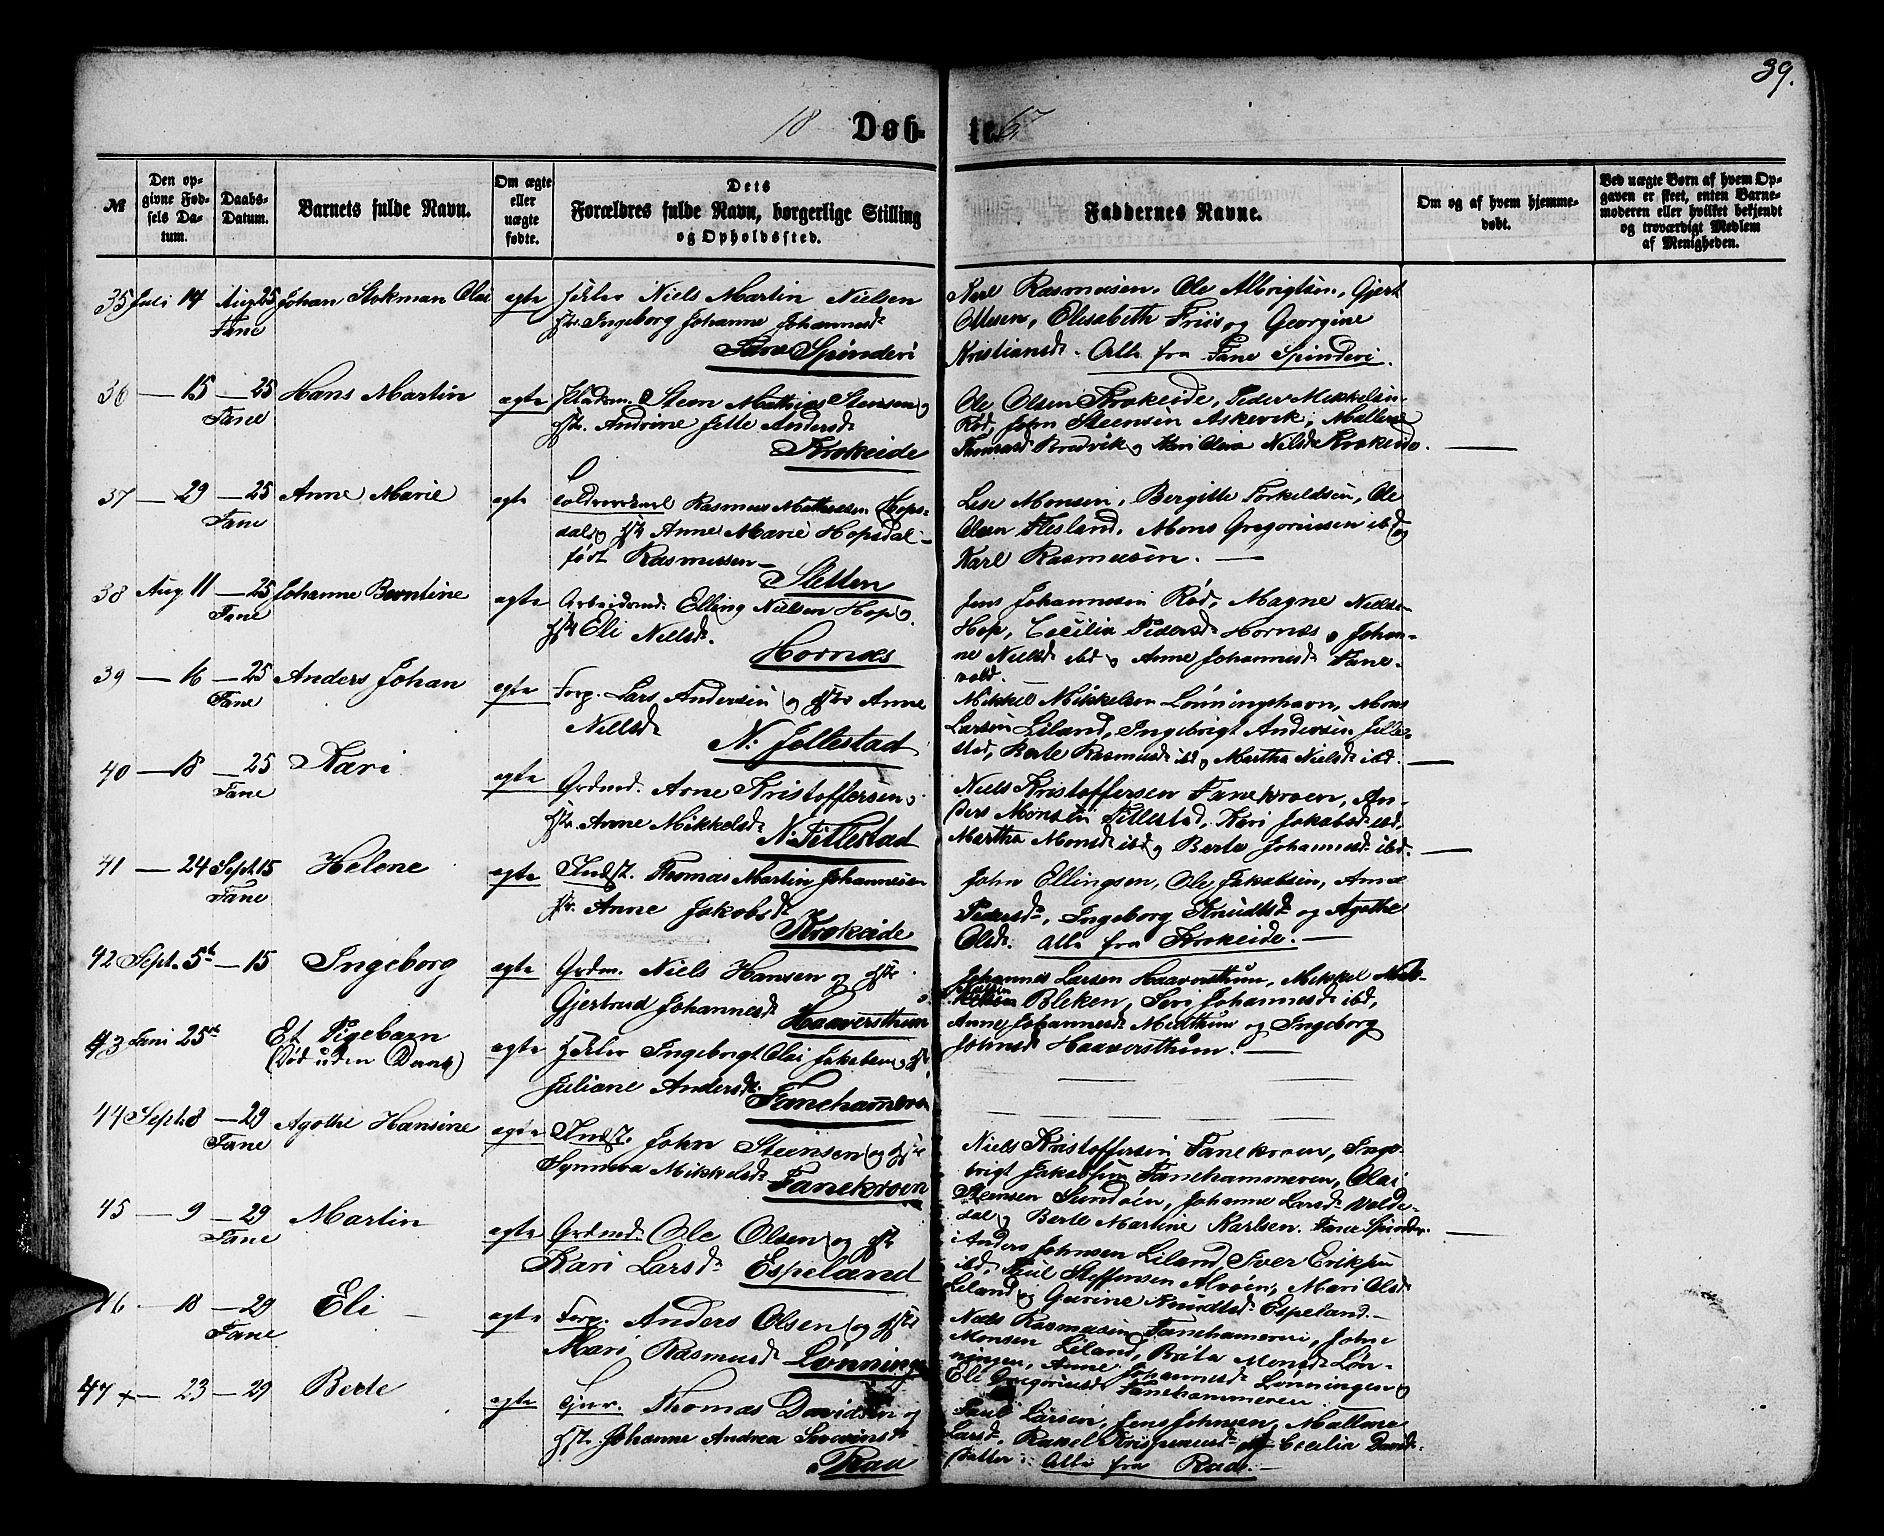 39.
18 Døb- te. 67
№
Den opgivne Fødsels Datum.
Daabs-Datum.
Barnets fulde Navn.
Om ægte eller uægte fødte.
Dets Forældres fulde Navn, borgerlige Stilling og Opholdssted.
Faddernes Navne.
Om og af hvem hjemmedøbt.
Ved uægte Børn af hvem Opgaven er skeet, enten Barnemoderen eller hvilket bekjendt og troværdigt Medlem af Menigheden.
35 Juli 14 Aug 25 Johan Stokman Olai ægte Niels Martin Nielsen
Fane
Ingeborg Johanne Johannesdr
Fane Spinderi
Karl Rasmussen, Ole Albrigtsen, Gjert
Olsen, Elisabeth Friis og Georgine
Kristiansdr. Alle fra Fane Spinderi.
36 — 15 — 25 Hans Martin ægte Steen Mathias Steensen og
Fane
Hstr. Andrine Jette Andersdr
Krokeide
Ole Olsen Krokeide, Peder Mikkelsen
Rød, John Steensen Askevik, Mallene
Bradvik og Kari Olava Nilsdr Krokeide.
37 — 29 — 25 Anne Marie ægte Rasmus Mathiesen Hops-
Fane
dal og Hst Anne Marie Hopsdal
født Rasmussen —
Sletten
Lise Monsen, Bergitte Torkeldsen, Ole
Olsen Flesland, Mons Gregoriussen ibd og
Karl Rasmussen. —
38 Aug 11 — 25 Johanne Berntine ægte Arbeidsmd. Elling Nielsen Hop og
Fane
Hst Eli Nielsdr.
Hornæs
Jens Johannessen Rød, Magne Nielsen
Hop, Cecilia Pedersdr Hornæs og Johan-
ne Nielsdr ibd og Anne Johannesdr Fane-
vold.
39 — 16 — 25 Anders Johan ægte Forp. Lars Andersen og Hstr Anne
Fane
Nielsdr
N. Jellestad
Mikkel Mikkelsen Lønningshavn, Mons
Larsen Liland, Ingebrigt Andersen Jelle-
stad, Berte Rasmusdr ibd og Martha Nielsdr ibd.
40 — 18 — 25 Kari ægte Grdmd. Arne Kristoffersen og
Fane
Hstr. Anne Mikkelsdr
N. Titlestad
Niels Kristoffersen Fanekroen, An-
ders Monsen Titlestad, Kari Jakobsdr ibd,
Martha Monsdr ibd og Berte Johannesdr ibd.
41 — 24 Sept. 15 Helene ægte Indst. Thomas Martin Johannesen
Fane
Hstr. Anne Jakobsdr
Krokeide
John Ellingsen, Ole Jakobsen, Anne
Pedersdr, Ingeborg Knudtsdr og Agathe
Olsdr. Alle fra Krokeide. —
42 Sept. 5te — 15 Ingeborg ægte Grdm. Niels Hansen og Hstr
Gjertrud Johannesdr
Haaversthun
Johannes Larsen Haaversthun, Mikkel
Bleken, Siri Johannesdr ibd,
Anne Johannesdr Midthun og Ingeborg
Johnsdr Haaversthun. —
43 Juni 25de Et Pigebarn ægte Ingebrigt Olai Jakobsen og Hstr
(død uden Daab)
Juliane Andersdr.
Fanehameren
44 Sept. 8 — 29 Agathe Hansine ægte Indst. John Steensen og Hstr
Fane
Synneva Mikkelsdr
Fanekroen
Niels Kristoffersen Fanekroen, Inge-
brigt Jakobsen Fanehammeren, Olai
Steensen Sundøen, Johanne Larsdr Valde-
dal og Berte Martine Karlsen. Fane Spinderi
45 — 9 — 29 Martin ægte Grdmd. Ole Olsen og Hstr
Fane
Kari Larsdr Espeland
Anders Johnsen Liland, Iver Eriksen
ibd, Poul Steffensen Alvøen, Mari Olsdr
Liland og Gurine Knudtsdr Espeland. —
46 — 18 — 29 Eli — ægte Forp. Anders Olsen og Hstr
Fane
Mari Rasmusdr Lønningen
Rasmussen Fanehameren, John
Monsen Liland, Brita Monsdr Løn-
ningen, Anne Johannesdr Lønningen og
Eli Gregoriusdr Fanehammeren.
47 × — 23 — 29 Berte ægte Thomas Davidsen og
Hstr. Johanne Andrea
Rau
Poul Larsen, Jens Johnsen, Mallene
Larsdr, Rakel og Cecilia Davids-
datter. Alle fra Raae. —